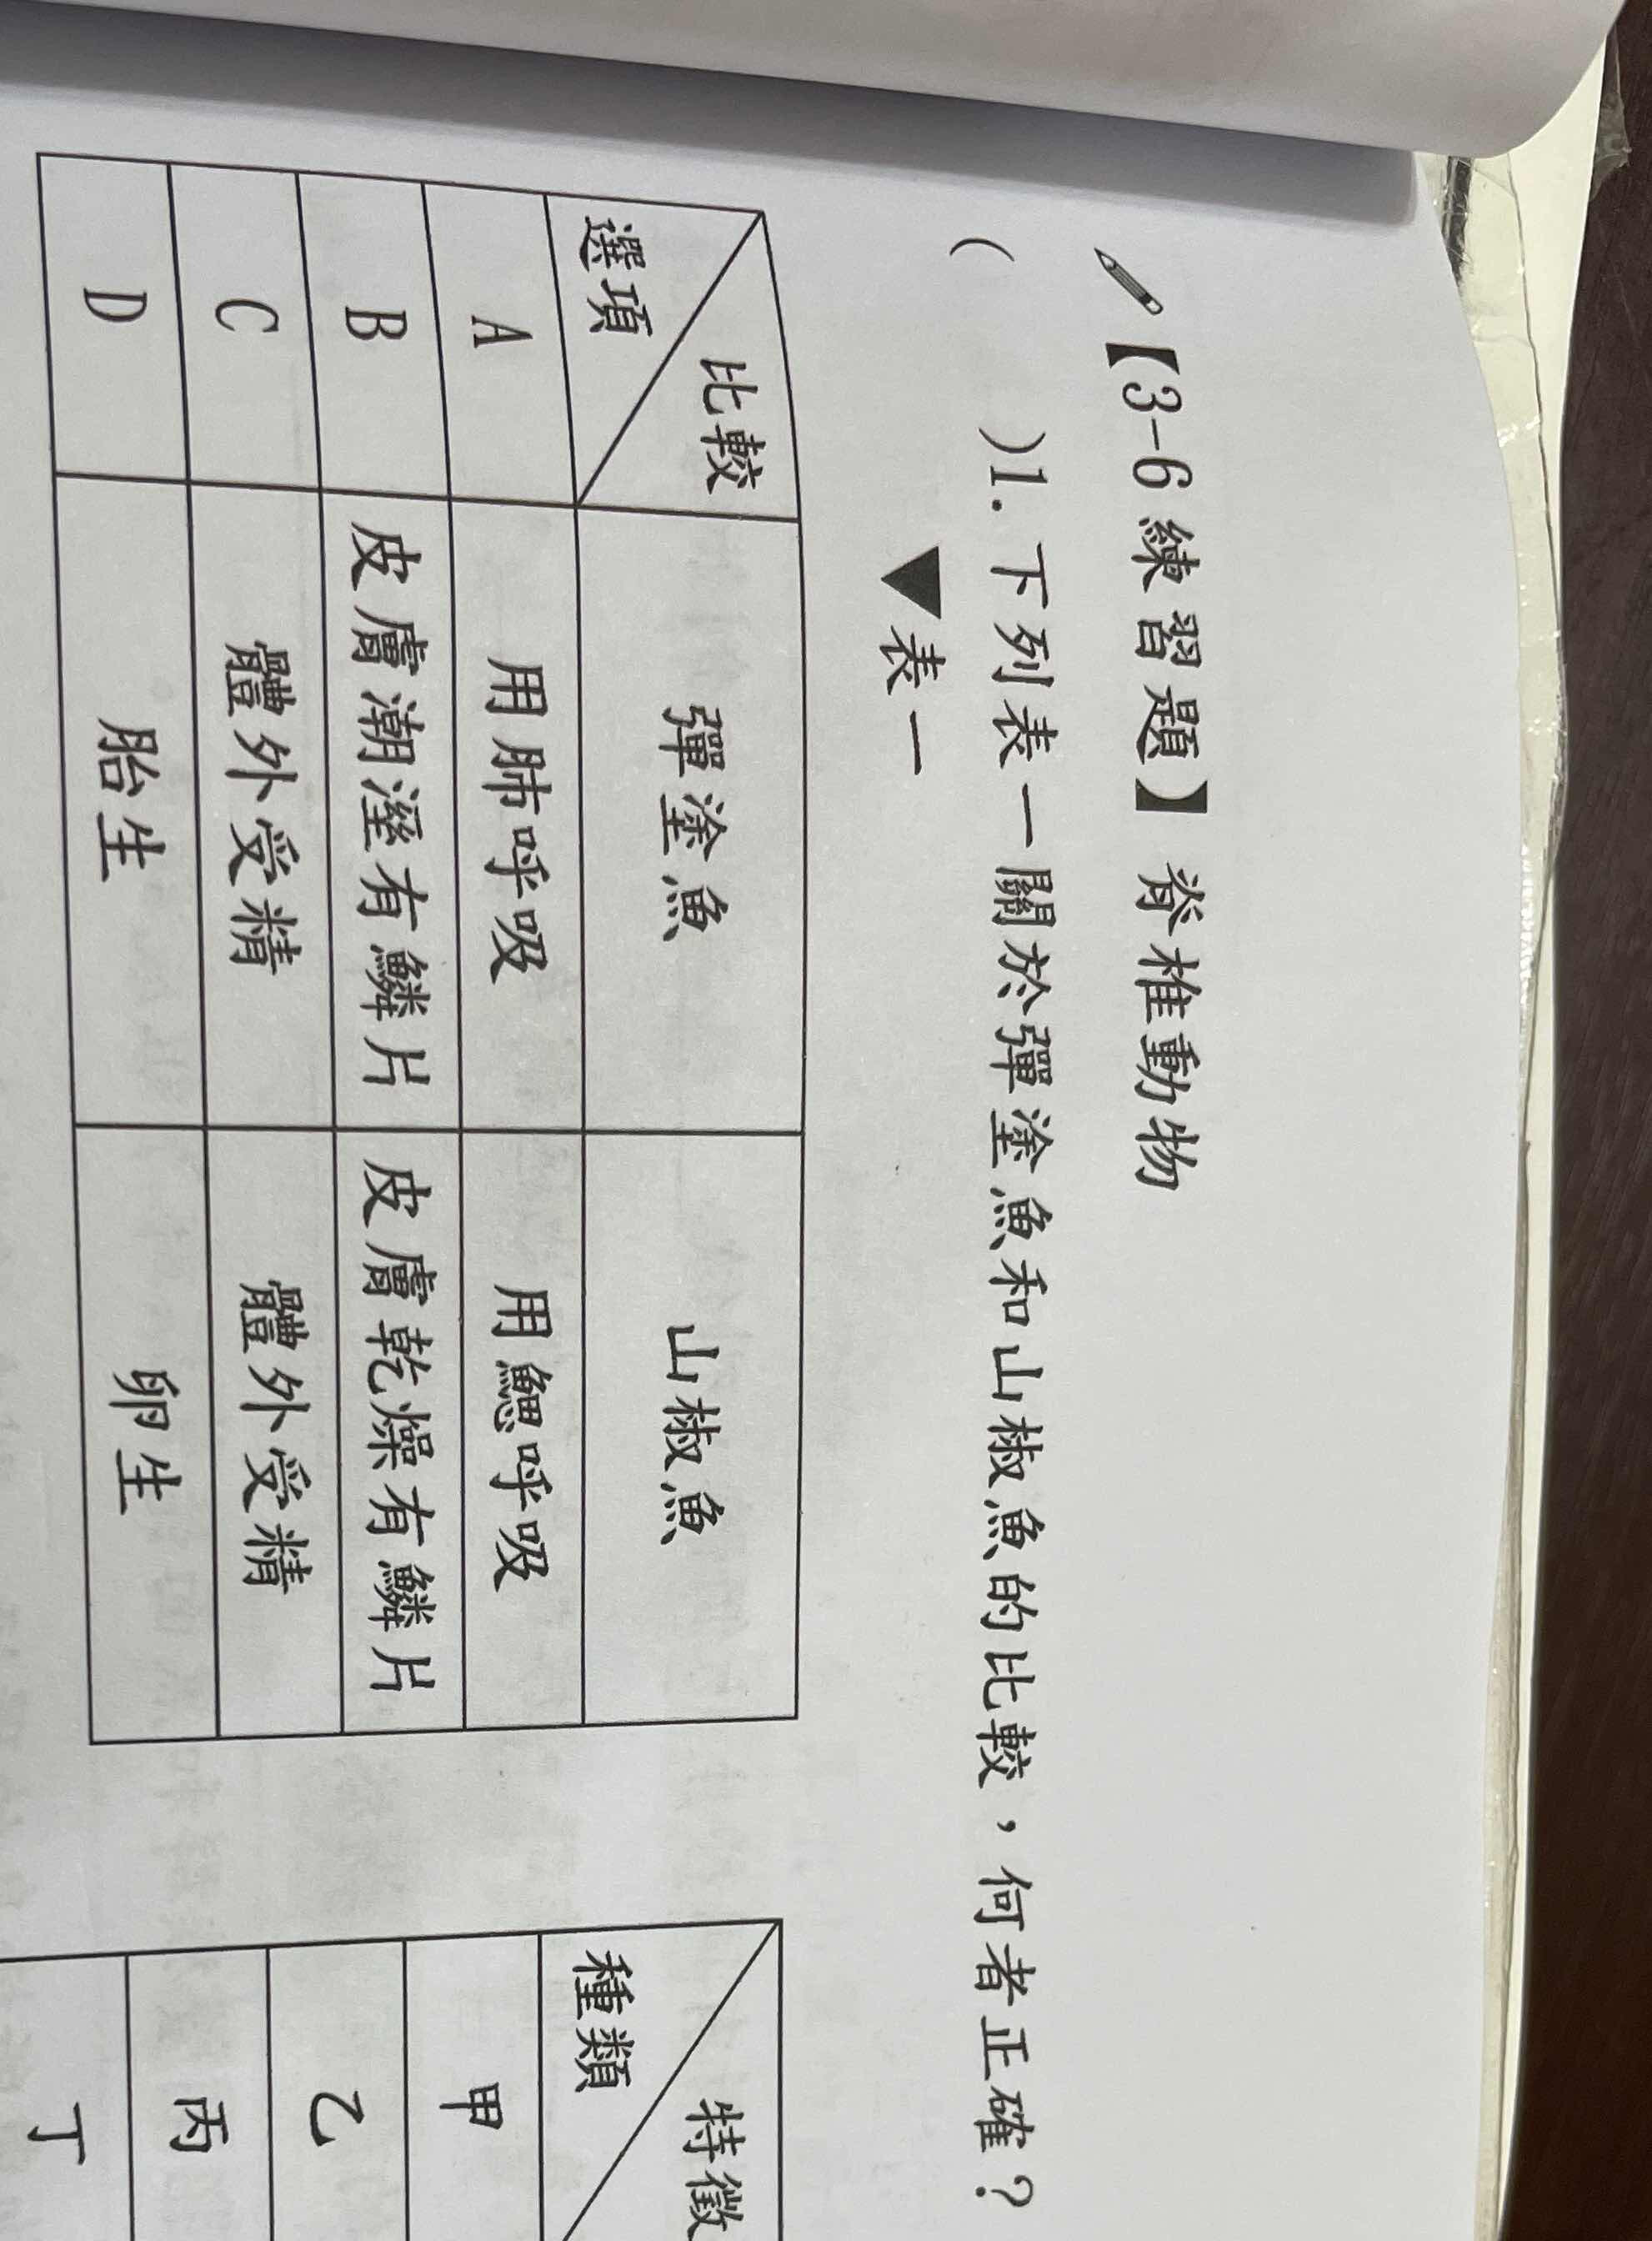 【3-6練習題】脊椎動物
( )1. 下列表一關於彈塗魚和山椒魚的比較，何者正確？
▼表一
比較 選項 彈塗魚 山椒魚
A 用肺呼吸 用鰓呼吸
B 皮膚潮溼有鱗片 皮膚乾燥有鱗片
C 體外受精 體外受精
D 胎生 卵生
特徵 種類
甲
乙
丙
丁